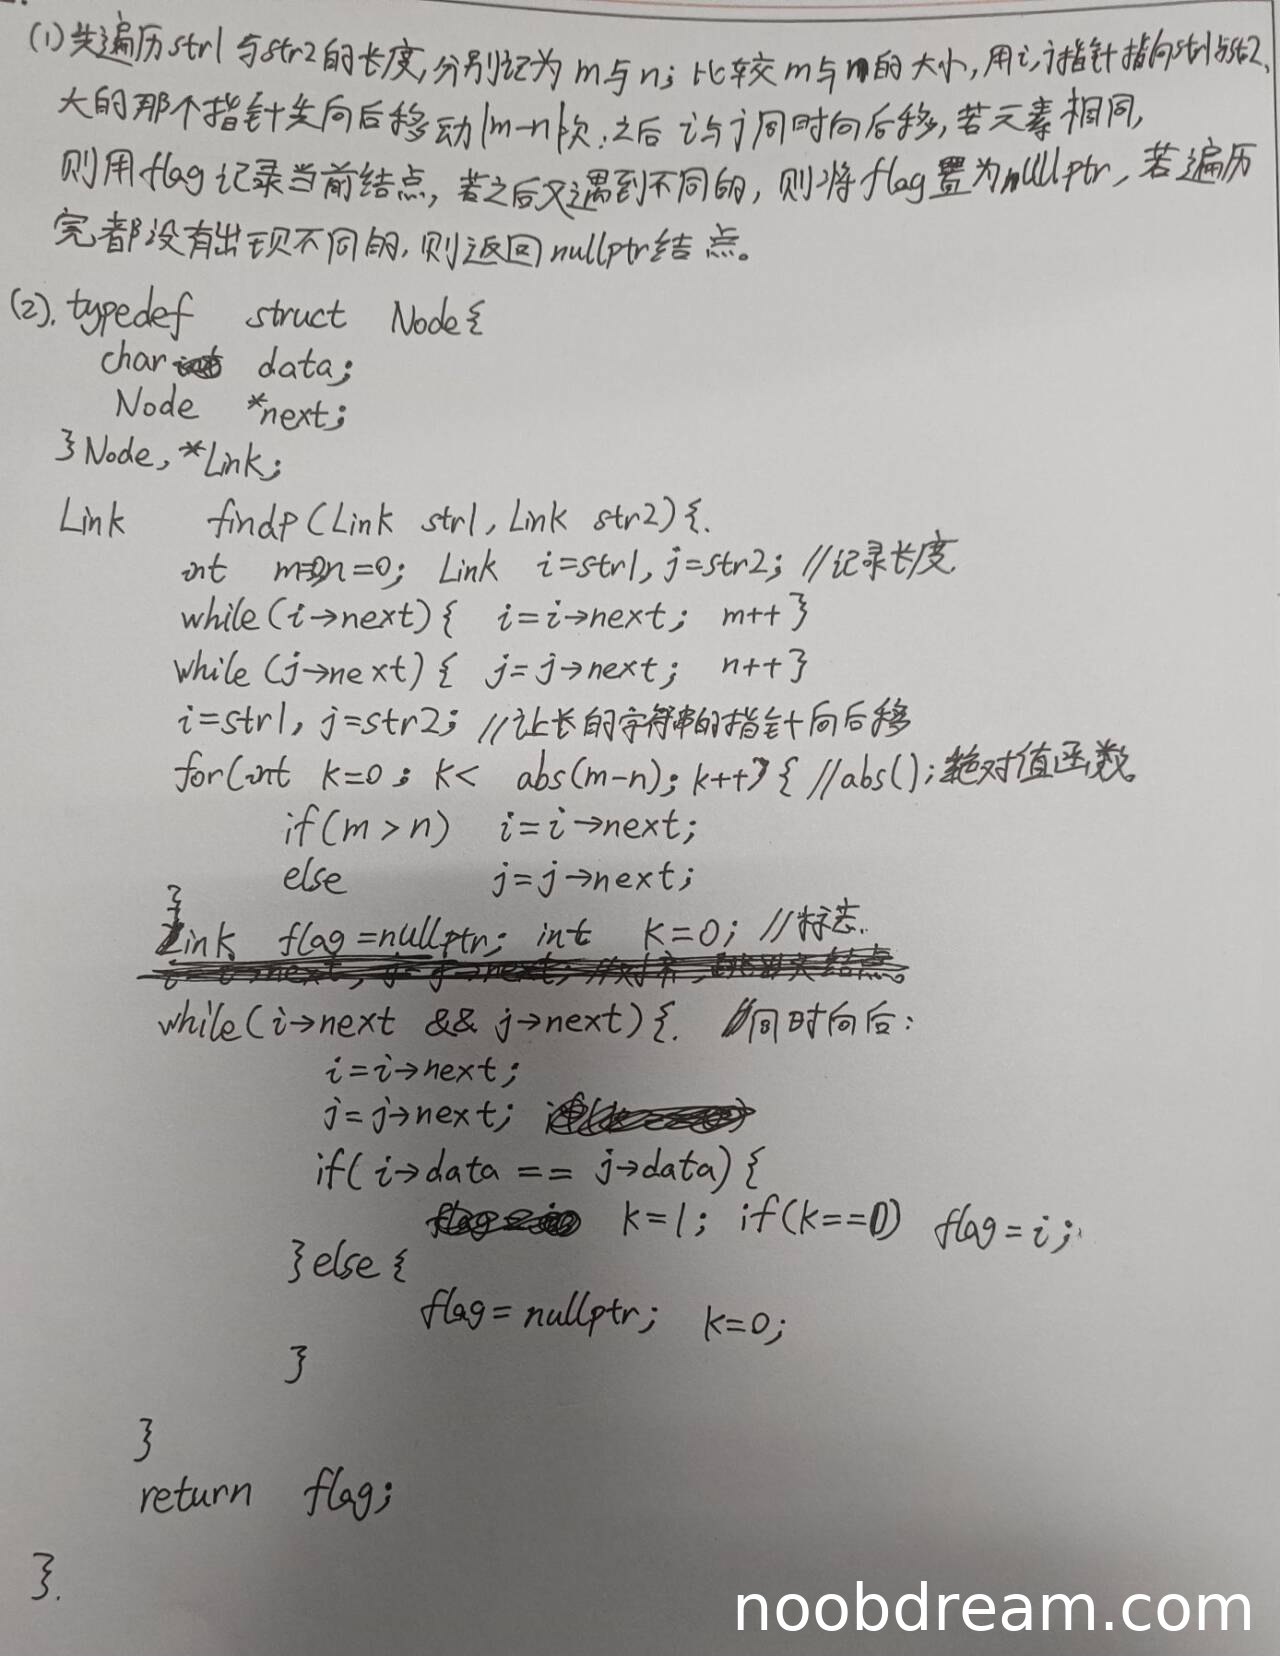 (1)先遍历str1与str2的长度,分别记为m与n;比较m与n的大小,用i,j指针指向str1与str2,
大的那个指针先向后移动|m-n|次.之后i与j同时向后移,若元素相同,
则用flag记录当前结点,若之后又遇到不同的,则将flag置为nullptr,若遍历
完都没有出现不同的,则返回nullptr结点。
(2).typedef struct Node{
char data;
Node *next;
}Node,*Link;
Link findp(Link str1,Link str2){.
int m=0,n=0; Link i=str1,j=str2; //记录长度
while(i→next){ i=i→next; m++}
while(j→next){ j=j→next; n++}
i=str1,j=str2; //让长的字符串的指针向后移
for(int k=0; k< abs(m-n); k++){ //abs();绝对值函数。
if(m>n) i=i→next;
else j=j→next;
}
Link flag=nullptr; int k=0; //标志.
while(i→next && j→next){. //同时向后:
i=i→next;
j=j→next;
if(i→data == j→data){
k=1; if(k==0) flag=i;
}else{
flag=nullptr; k=0;
}
}
return flag;
}.
noobdream.com